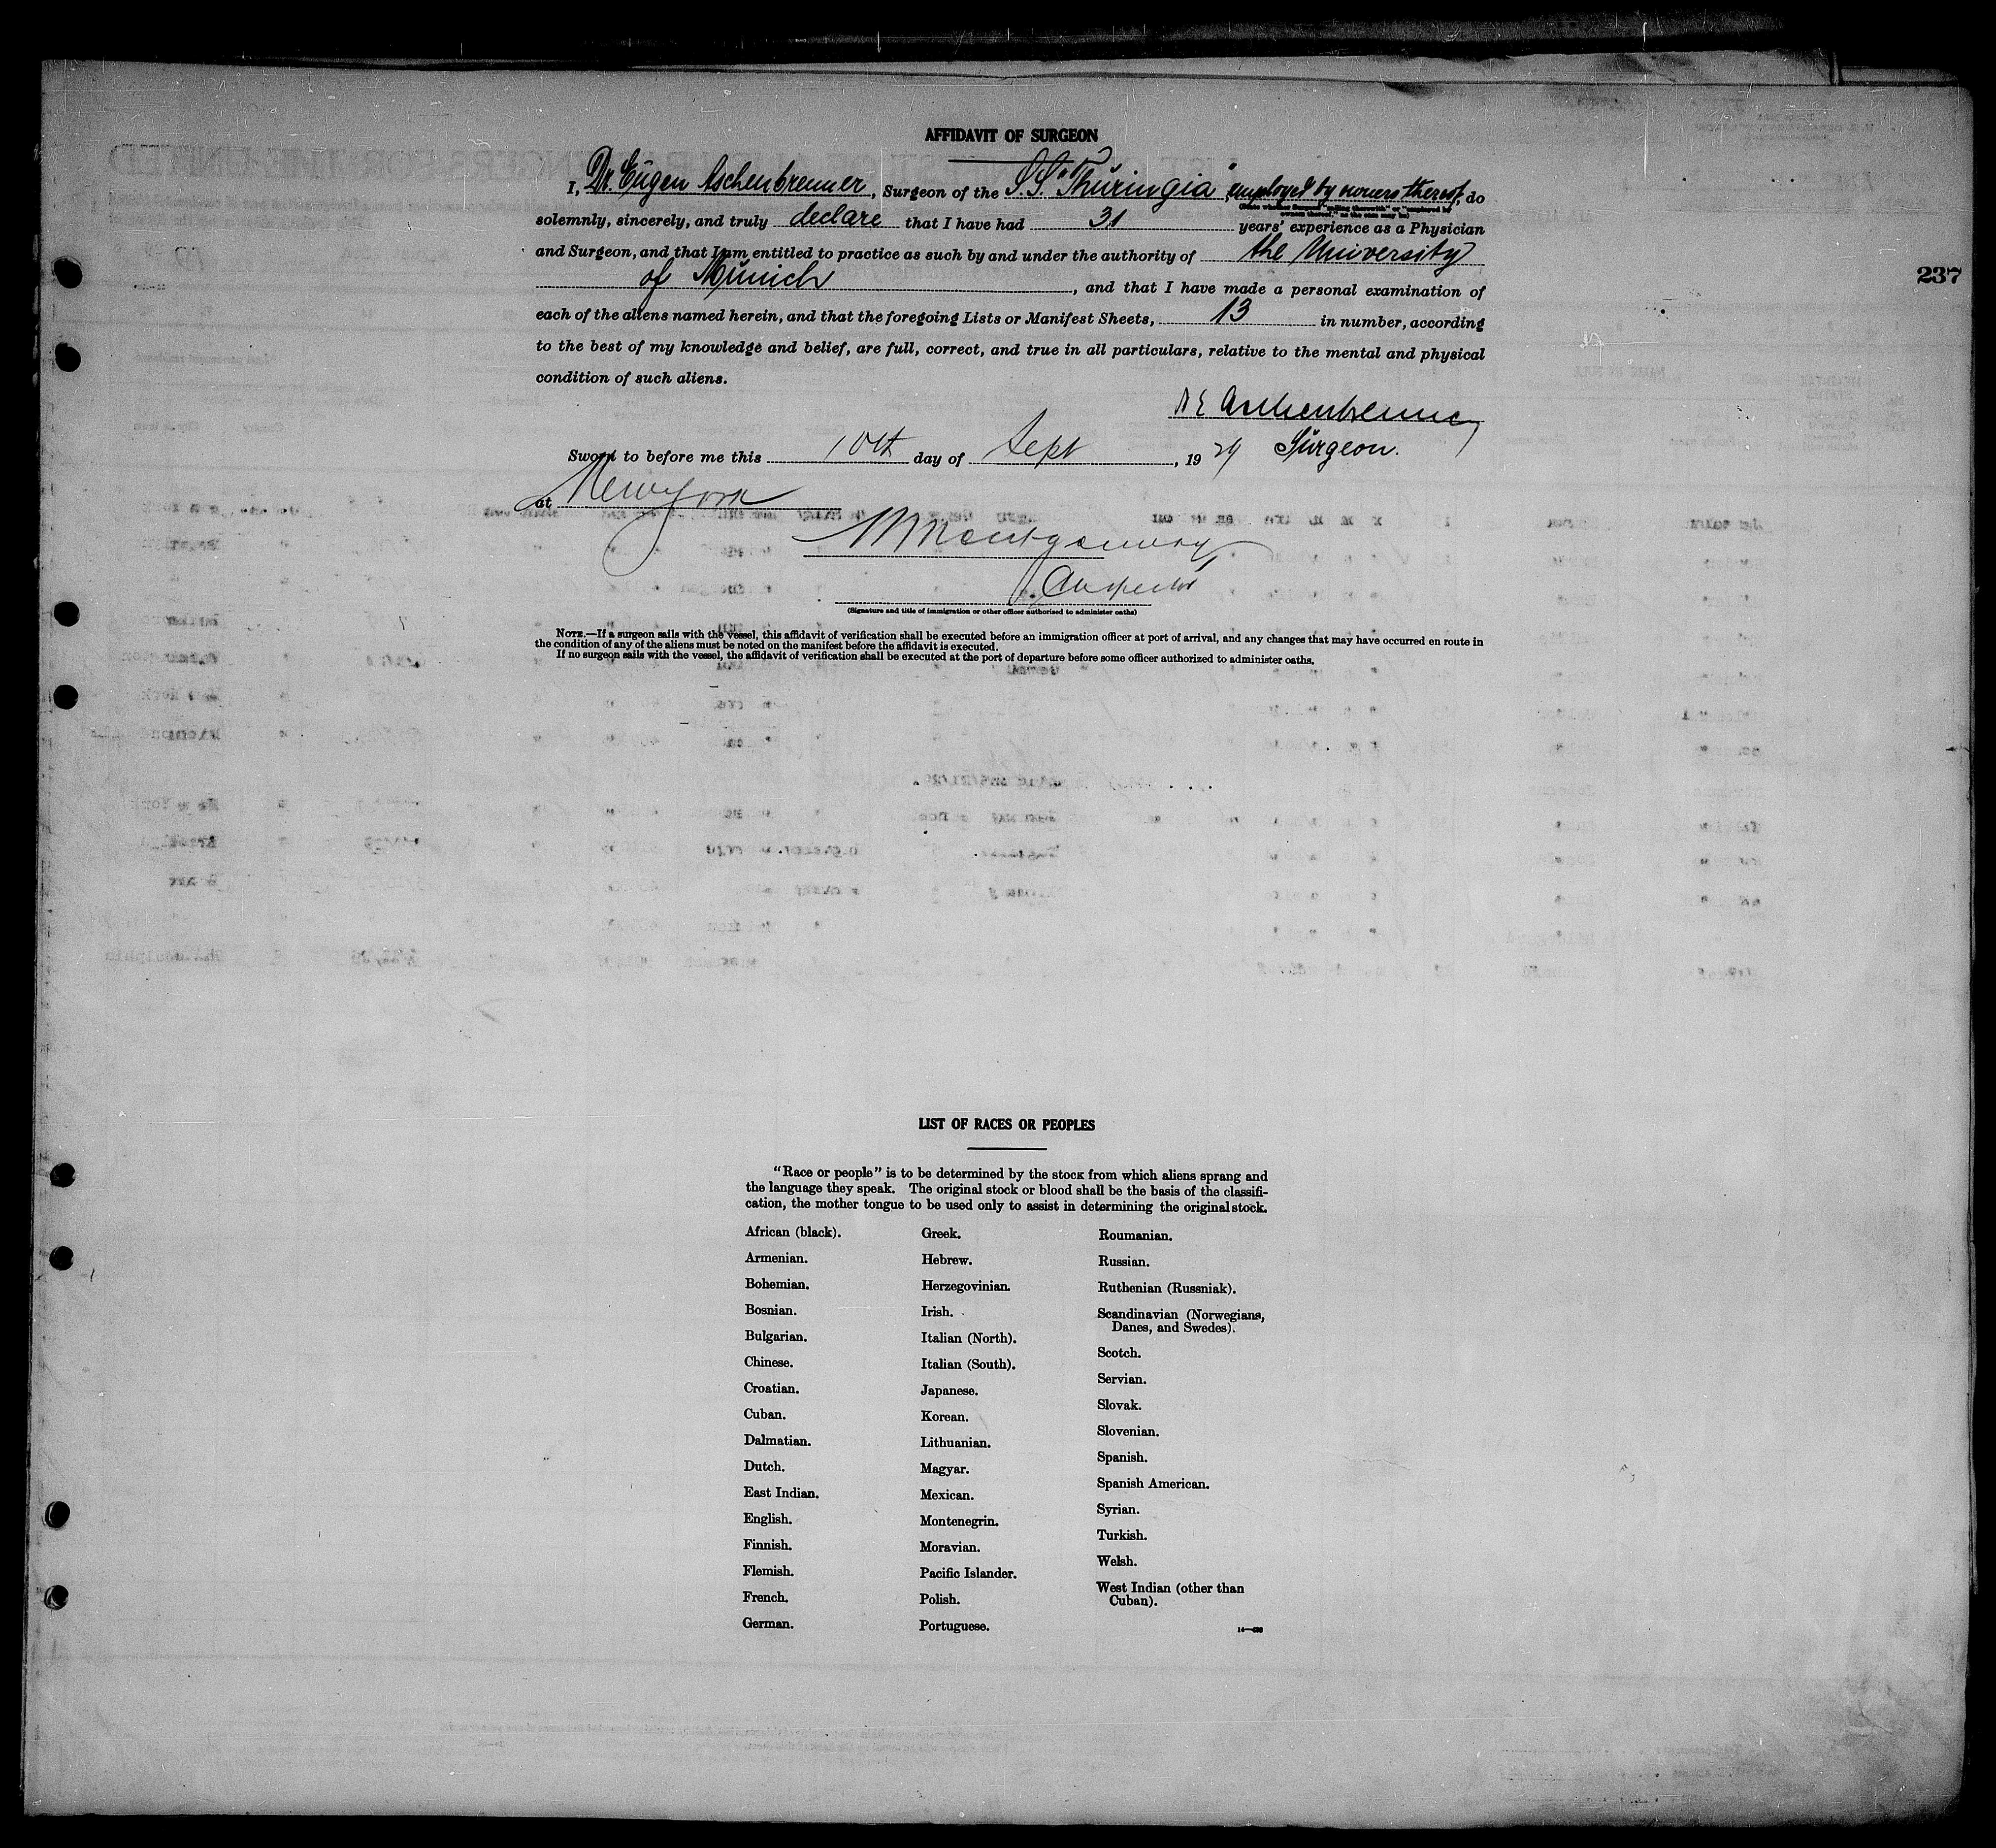 AFFIDAVIT OF SURGEON
I, Dr. Eugen Aschenbrenner, Surgeon of the S.S. "Thuringia", employed by owners thereof, do
(State whether Surgeon "sailing therewith" or "employed by
owners thereof," as the case may be)
solemnly, sincerely, and truly declare that I have had 31 years' experience as a Physician
and Surgeon, and that I am entitled to practice as such by and under the authority of the University
of Munich, and that I have made a personal examination of
each of the aliens named herein, and that the foregoing Lists or Manifest Sheets, 13 in number, according
to the best of my knowledge and belief, are full, correct, and true in all particulars, relative to the mental and physical
condition of such aliens.
Aschenbrenner
Surgeon.
Sworn to before me this 10th day of Sept, 1929
at New York
Montgomery
Inspector
(Signature and title of immigration or other officer authorized to administer oaths)
NOTE.—If a surgeon sails with the vessel, this affidavit of verification shall be executed before an immigration officer at port of arrival, and any changes that may have occurred en route in
the condition of any of the aliens must be noted on the manifest before the affidavit is executed.
If no surgeon sails with the vessel, the affidavit of verification shall be executed at the port of departure before some officer authorized to administer oaths.
237
LIST OF RACES OR PEOPLES
"Race or people" is to be determined by the stock from which aliens sprang and
the language they speak. The original stock or blood shall be the basis of the classifi-
cation, the mother tongue to be used only to assist in determining the original stock.
African (black).
Armenian.
Bohemian.
Bosnian.
Bulgarian.
Chinese.
Croatian.
Cuban.
Dalmatian.
Dutch.
East Indian.
English.
Finnish.
Flemish.
French.
German.
Greek.
Hebrew.
Herzegovinian.
Irish.
Italian (North).
Italian (South).
Japanese.
Korean.
Lithuanian.
Magyar.
Mexican.
Montenegrin.
Moravian.
Pacific Islander.
Polish.
Portuguese.
Roumanian.
Russian.
Ruthenian (Russniak).
Scandinavian (Norwegians,
Danes, and Swedes).
Scotch.
Servian.
Slovak.
Slovenian.
Spanish.
Spanish American.
Syrian.
Turkish.
Welsh.
West Indian (other than
Cuban).